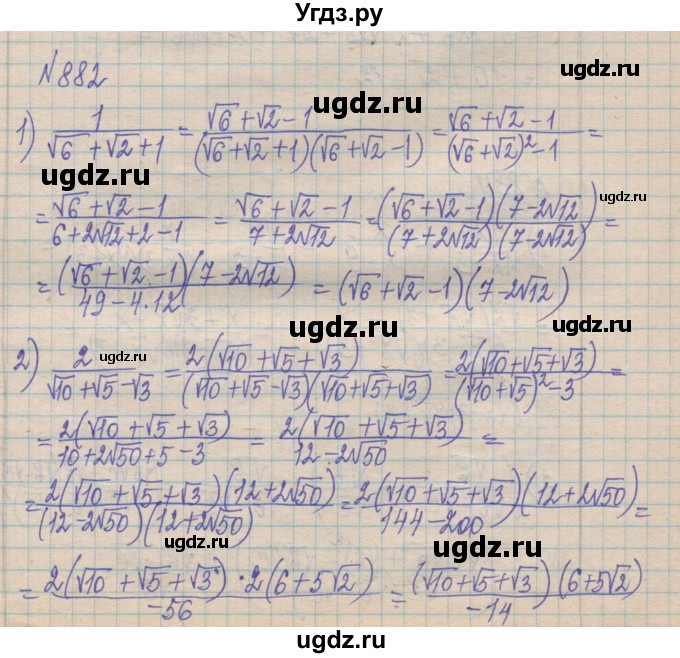 Угдз.ру
N882
ugdz.ru ugdz.ru
1) 1/(√6 + √2 + 1) = (√6 + √2 - 1)/((√6 + √2 + 1)(√6 + √2 - 1)) = (√6 + √2 - 1)/((√6 + √2)² - 1) =
ugdz.ru ugdz.ru
= (√6 + √2 - 1)/(6 + 2√12 + 2 - 1) = (√6 + √2 - 1)/(7 + 2√12) = (√6 + √2 - 1)(7 - 2√12)/((7 + 2√12)(7 - 2√12)) =
ugdz.ru
= (√6 + √2 - 1)(7 - 2√12)/(49 - 4·12) = (√6 + √2 - 1)(7 - 2√12)
ugdz.ru
2) 2/(√10 + √5 - √3) = 2(√10 + √5 + √3)/((√10 + √5 - √3)(√10 + √5 + √3)) = 2(√10 + √5 + √3)/((√10 + √5)² - 3) =
ugdz.ru ugdz.ru
= 2(√10 + √5 + √3)/(10 + 2√50 + 5 - 3) = 2(√10 + √5 + √3)/(12 - 2√50) =
ugdz.ru
= 2(√10 + √5 + √3)(12 + 2√50)/((12 - 2√50)(12 + 2√50)) = 2(√10 + √5 + √3)(12 + 2√50)/(144 - 200) =
ugdz.ru ugdz.ru
= 2(√10 + √5 + √3)·2(6 + 5√2)/(-56) = (√10 + √5 + √3)(6 + 5√2)/(-14)
ugdz.ru ugdz.ru